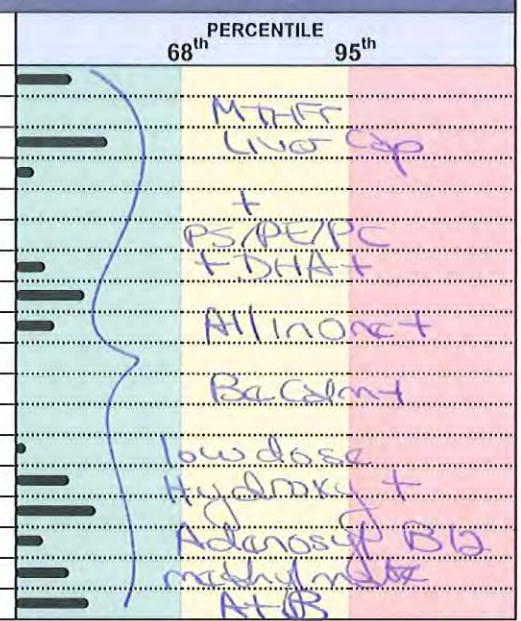 PERCENTILE
68th 95th
MTHFR
Liver Cap
+
PS/PE/PC
+ DHA +
All in One +
Be Calm +
low dose
Hydroxy +
Adenosyl B12
methylmate
A + B